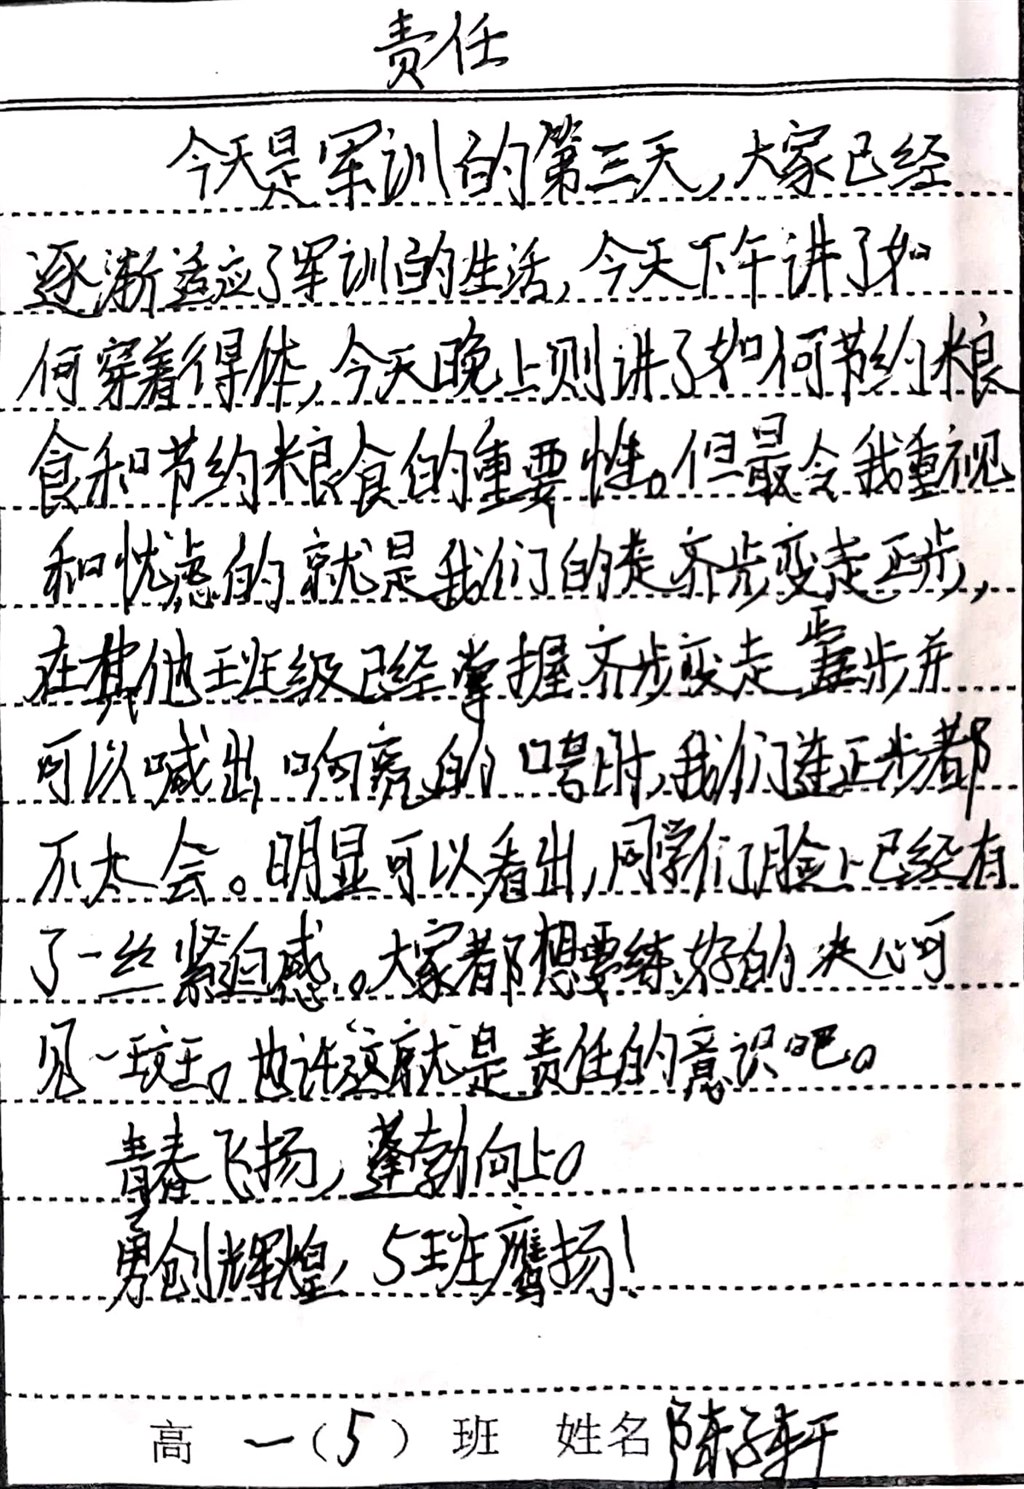 责任
今天是军训的第三天,大家已经
逐渐适应了军训的生活,今天下午讲了如
何穿着得体,今天晚上则讲了如何节约粮
食和节约粮食的重要性。但最令我重视
和忧虑的就是我们的走齐步变走正步,
在其他班级已经掌握齐步变走正步并
可以喊出响亮的口号时,我们连正步都
不太会。明显可以看出,同学们脸上已经有
了一丝紧迫感。大家都想要练好的决心可
见一斑。也许这就是责任的意识吧。
青春飞扬,蓬勃向上。
勇创辉煌,5班鹰扬!
高一(5)班 姓名 陈子轩